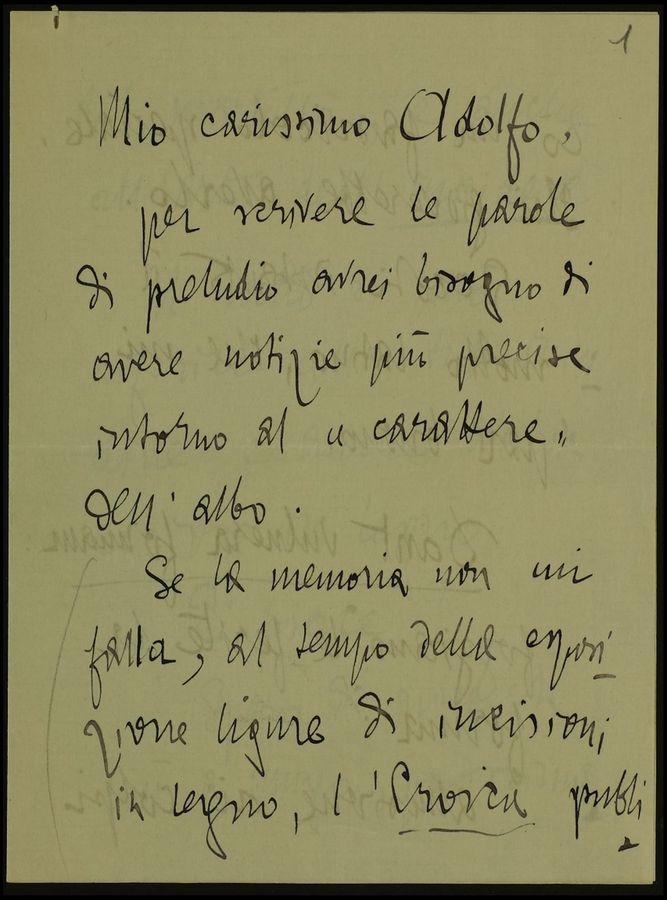 1
Mio carissimo Adolfo,
per scrivere le parole
di preludio avrei bisogno di
avere notizie più precise
intorno al « carattere »
dell'albo.
Se la memoria non mi
falla, al tempo della esposi
zione ligure di incisioni
in legno, l'Eroica publi